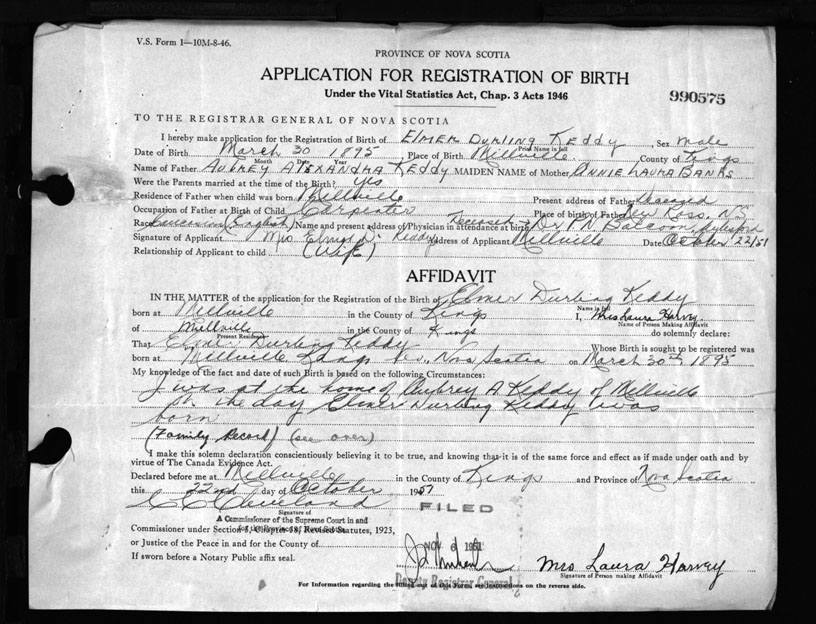 V.S. Form 1—10M-8-46.
PROVINCE OF NOVA SCOTIA
APPLICATION FOR REGISTRATION OF BIRTH
Under the Vital Statistics Act, Chap. 3 Acts 1946
990575
TO THE REGISTRAR GENERAL OF NOVA SCOTIA
I hereby make application for the Registration of Birth of ELMER DURLING KEDDY Sex male
Print Name in full
Date of Birth March 30 1895 Place of Birth Millville County of Kings
Month Date Year
Name of Father AUBREY ALEXANDRA KEDDY MAIDEN NAME of Mother ANNIE LAURA BANKS
Were the Parents married at the time of the Birth? yes
Residence of Father when child was born Millville Present address of Father Deceased
Occupation of Father at Birth of Child Carpenter Place of birth of Father New Ross, N.S.
Race Caucasian (English) Name and present address of Physician in attendance at birth Deceased Dr. P.N. Balcom, Aylesford
Signature of Applicant Mrs Elmer D. Keddy Address of Applicant Millville Date October 22/51
Relationship of Applicant to child (Wife)
AFFIDAVIT
IN THE MATTER of the application for the Registration of the Birth of Elmer Durling Keddy
Name in full
born at Millville in the County of Kings I, Mrs Laura Harvey
Name of Person Making Affidavit
of Millville in the County of Kings do solemnly declare:
Present Residence
That Elmer Durling Keddy Whose Birth is sought to be registered was
born at Millville Kings Nova Scotia on March 30th 1895
My knowledge of the fact and date of such Birth is based on the following Circumstances:
I was at the home of Aubrey A Keddy of Millville
on the day Elmer Durling Keddy was
born
(Family Record) (see over)
I make this solemn declaration conscientiously believing it to be true, and knowing that it is of the same force and effect as if made under oath and by
virtue of The Canada Evidence Act.
Declared before me at Millville in the County of Kings and Province of Nova Scotia
this 22nd day of October 1951
FILED
C C Cleveland
Signature of
A Commissioner of the Supreme Court in and
for the Province of Nova Scotia
Commissioner under Section 5, Chapter 38, Revised Statutes, 1923,
or Justice of the Peace in and for the County of
NOV 6 1951
If sworn before a Notary Public affix seal.
Mrs Laura Harvey
Signature of Person making Affidavit
Deputy Registrar General
For Information regarding the filling out of this Form, see instructions on the reverse side.